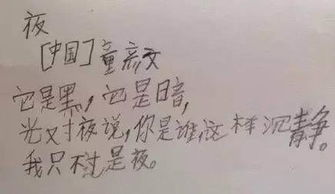 夜
[中国]童亦文
它是黑，它是暗，
光对夜说，你是谁，这样沉静。
我只不过是夜。